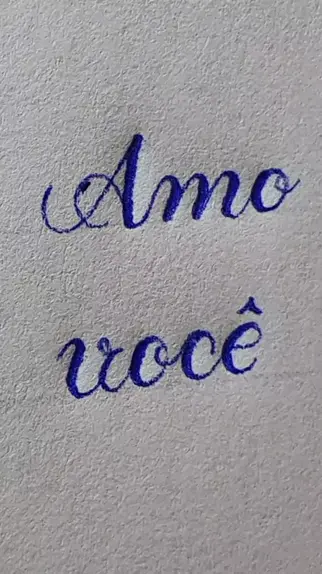 Amo
você